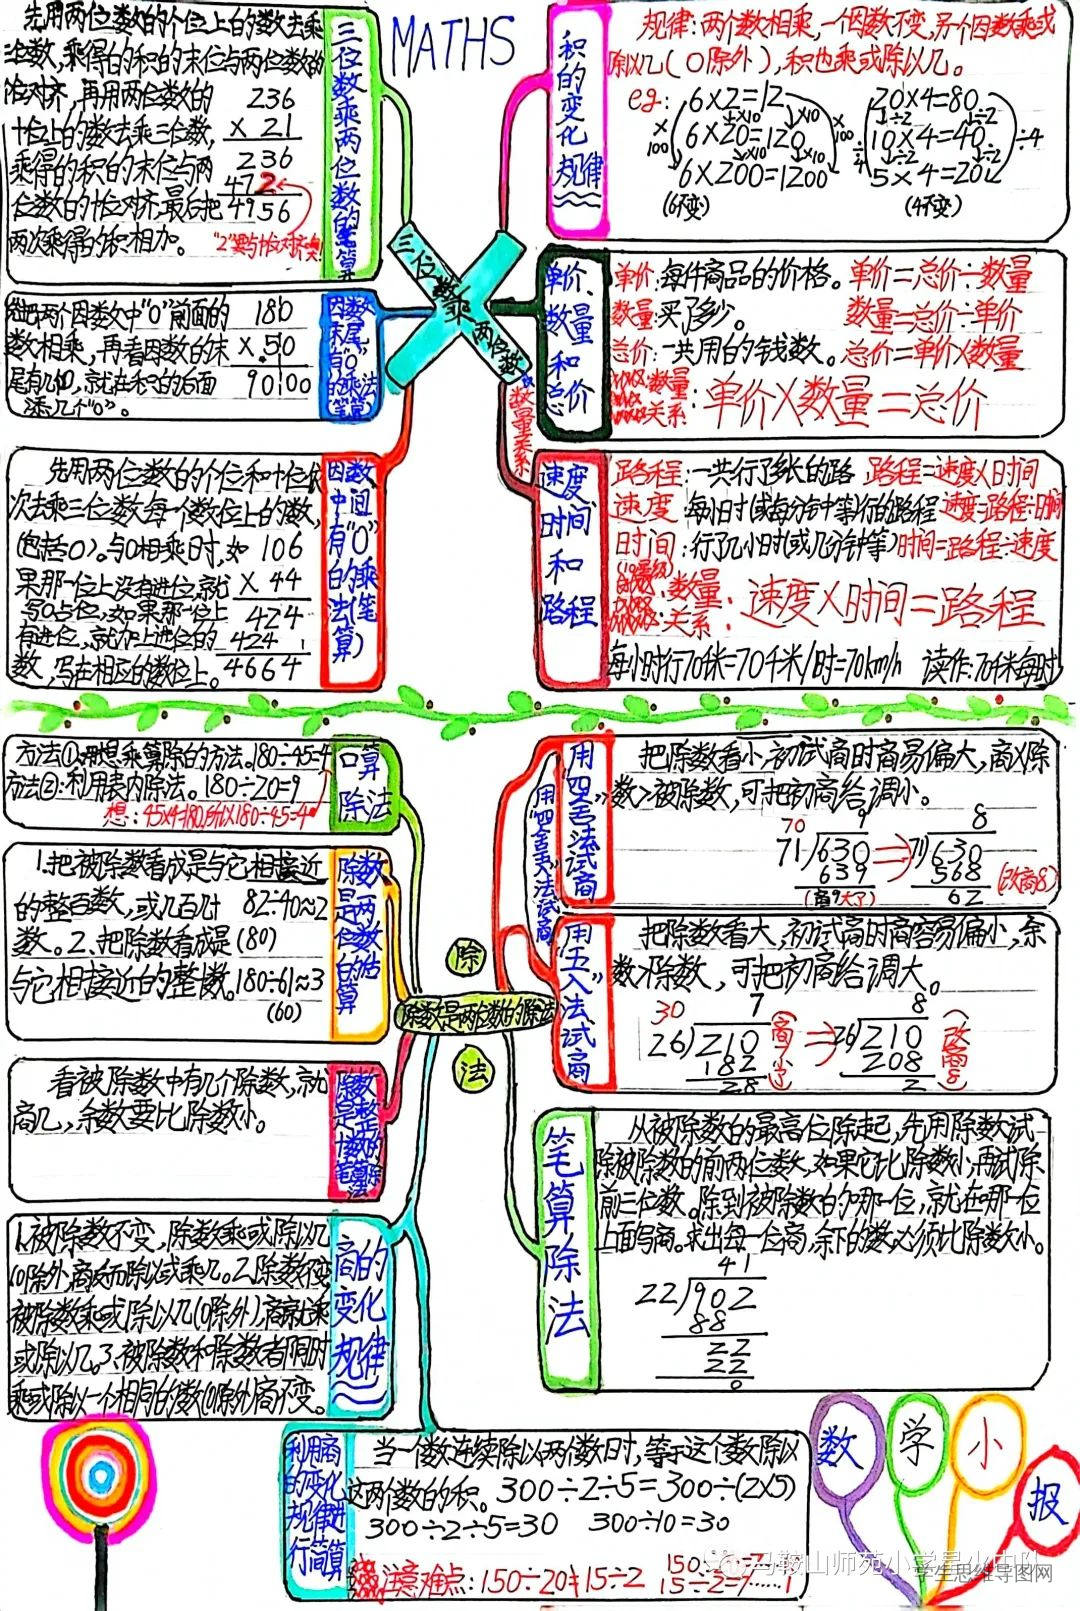 MATHS
先用两位数的个位上的数去乘
位数,乘得的积的末位与两位数的
位对齐,再用两位数的
十位上的数去乘三位数,
乘得的积的末位与两
位数的十位对齐,最后把
两次乘得的积相加。
236
× 21
236
472
4956
"2"要与十位对齐哟!
三位数乘两位数的笔算
先把两个因数中"0"前面的
数相乘,再看因数的末
尾有几个0,就在积的后面
添几个"0"。
180
×.50
90100
因数末尾有"0"的乘法(笔算)
先用两位数的个位和十位依
次去乘三位数每一个数位上的数,
(包括0)。与0相乘时,如
果那一位上没有进位,就
写0占位,如果那一位上
有进位,就加上进位的
数,写在相应的数位上。
106
× 44
424
424
4664
因数中间有"0"的乘法(笔算)
三位数乘两位数
数量关系
积的变化规律
规律:两个数相乘,一个因数不变,另个因数乘或
除以几(0除外),积也乘或除以几。
eg:
6×2=12
6×20=120
6×200=1200
(6不变)
×100
×10
×10
×10
×10
×100
20×4=80
10×4=40
5×4=20
(4不变)
÷4
÷2
÷2
÷2
÷2
÷4
单价、数量和总价
单价:每件商品的价格。 单价=总价÷数量
数量:买了多少。 数量=总价÷单价
总价:一共用的钱数。总价=单价×数量
数量关系:单价×数量=总价
速度、时间和路程
路程:一共行了多长的路 路程=速度×时间
速度:每小时(或每分钟等)行的路程 速度=路程÷时间
时间:行了几小时(或几分钟等)时间=路程÷速度
数量关系:速度×时间=路程
每小时行70千米=70千米/时=70km/h 读作:70千米每时
方法①:用想乘算除的方法。180÷45=4
方法②:利用表内除法。180÷20=9
想:45×4=180,所以180÷45=4
口算除法
1.把被除数看成是与它相接近
的整百数,或几百几十 82÷40≈2
数。2、把除数看成是 (80)
与它相接近的整十数。180÷61≈3
(60)
除数是两位数的估算
看被除数中有几个除数,就
商几,余数要比除数小。
除数是整十数的笔算除法
1.被除数不变,除数乘或除以几
(0除外,商反而除以或乘几。2.除数不变
被除数乘或除以几(0除外),商就乘
或除以几。3、被除数和除数都同时
乘或除以一个相同的数(0除外)商不变。
商的变化规律
除
除数是两位数的除法
法
用"四舍五入"法试商
用"四舍"法试商
把除数看小,初试商时商易偏大,商×除
数>被除数,可把初商给调小。
70 9 8
71)630 ⇒ 71)630
639 568 (改商8)
(商9大了) 62
用"五入"法试商
把除数看大,初试商时商容易偏小,余
数>除数,可把初商给调大。
30 7 8
26)210 (商7小了) ⇒ 26)210 (改商8)
182 208
28 2
笔算除法
从被除数的最高位除起,先用除数试
除被除数的前两位数,如果它比除数小,再试除
前三位数。除到被除数的哪一位,就在哪一位
上面写商。求出每一位商,余下的数必须比除数小。
41
22)902
88
22
22
0
利用商的变化规律进行简算
当一个数连续除以两个数时,等于这个数除以
这两个数的积。300÷2÷5=300÷(2×5)
300÷2÷5=30 300÷10=30
注意难点:150÷20≠15÷2
15÷2=7……1
数学小报
学生思维导图网